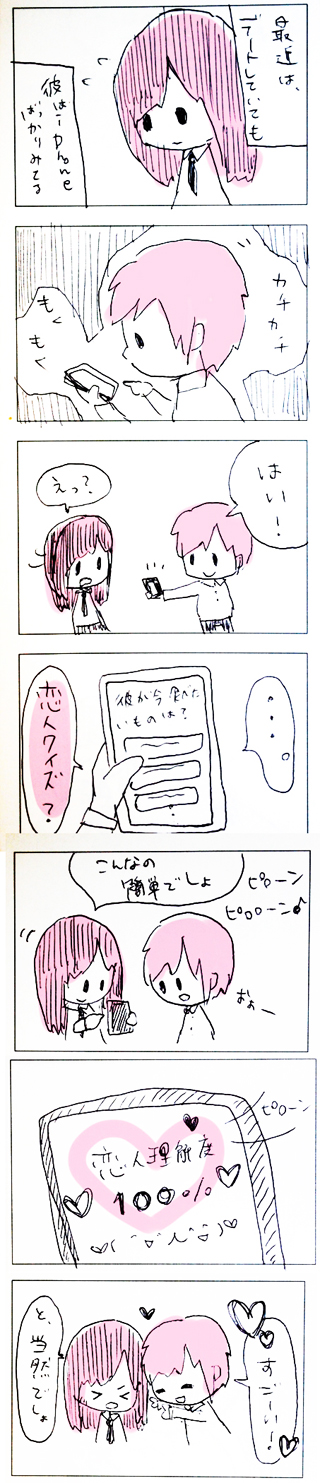 最近は、
デートしていても
彼はiPhone
ばっかりみてる
カチ
カチ
もく
もく
はい!
えっ?
・・・。
彼が今食べた
いものは?
恋人クイズ?
こんなの
簡単でしょ
ピローン
ピロローン♪
おぉー
ピローン
恋人理解度
100%
すごーい!
と、当然でしょ